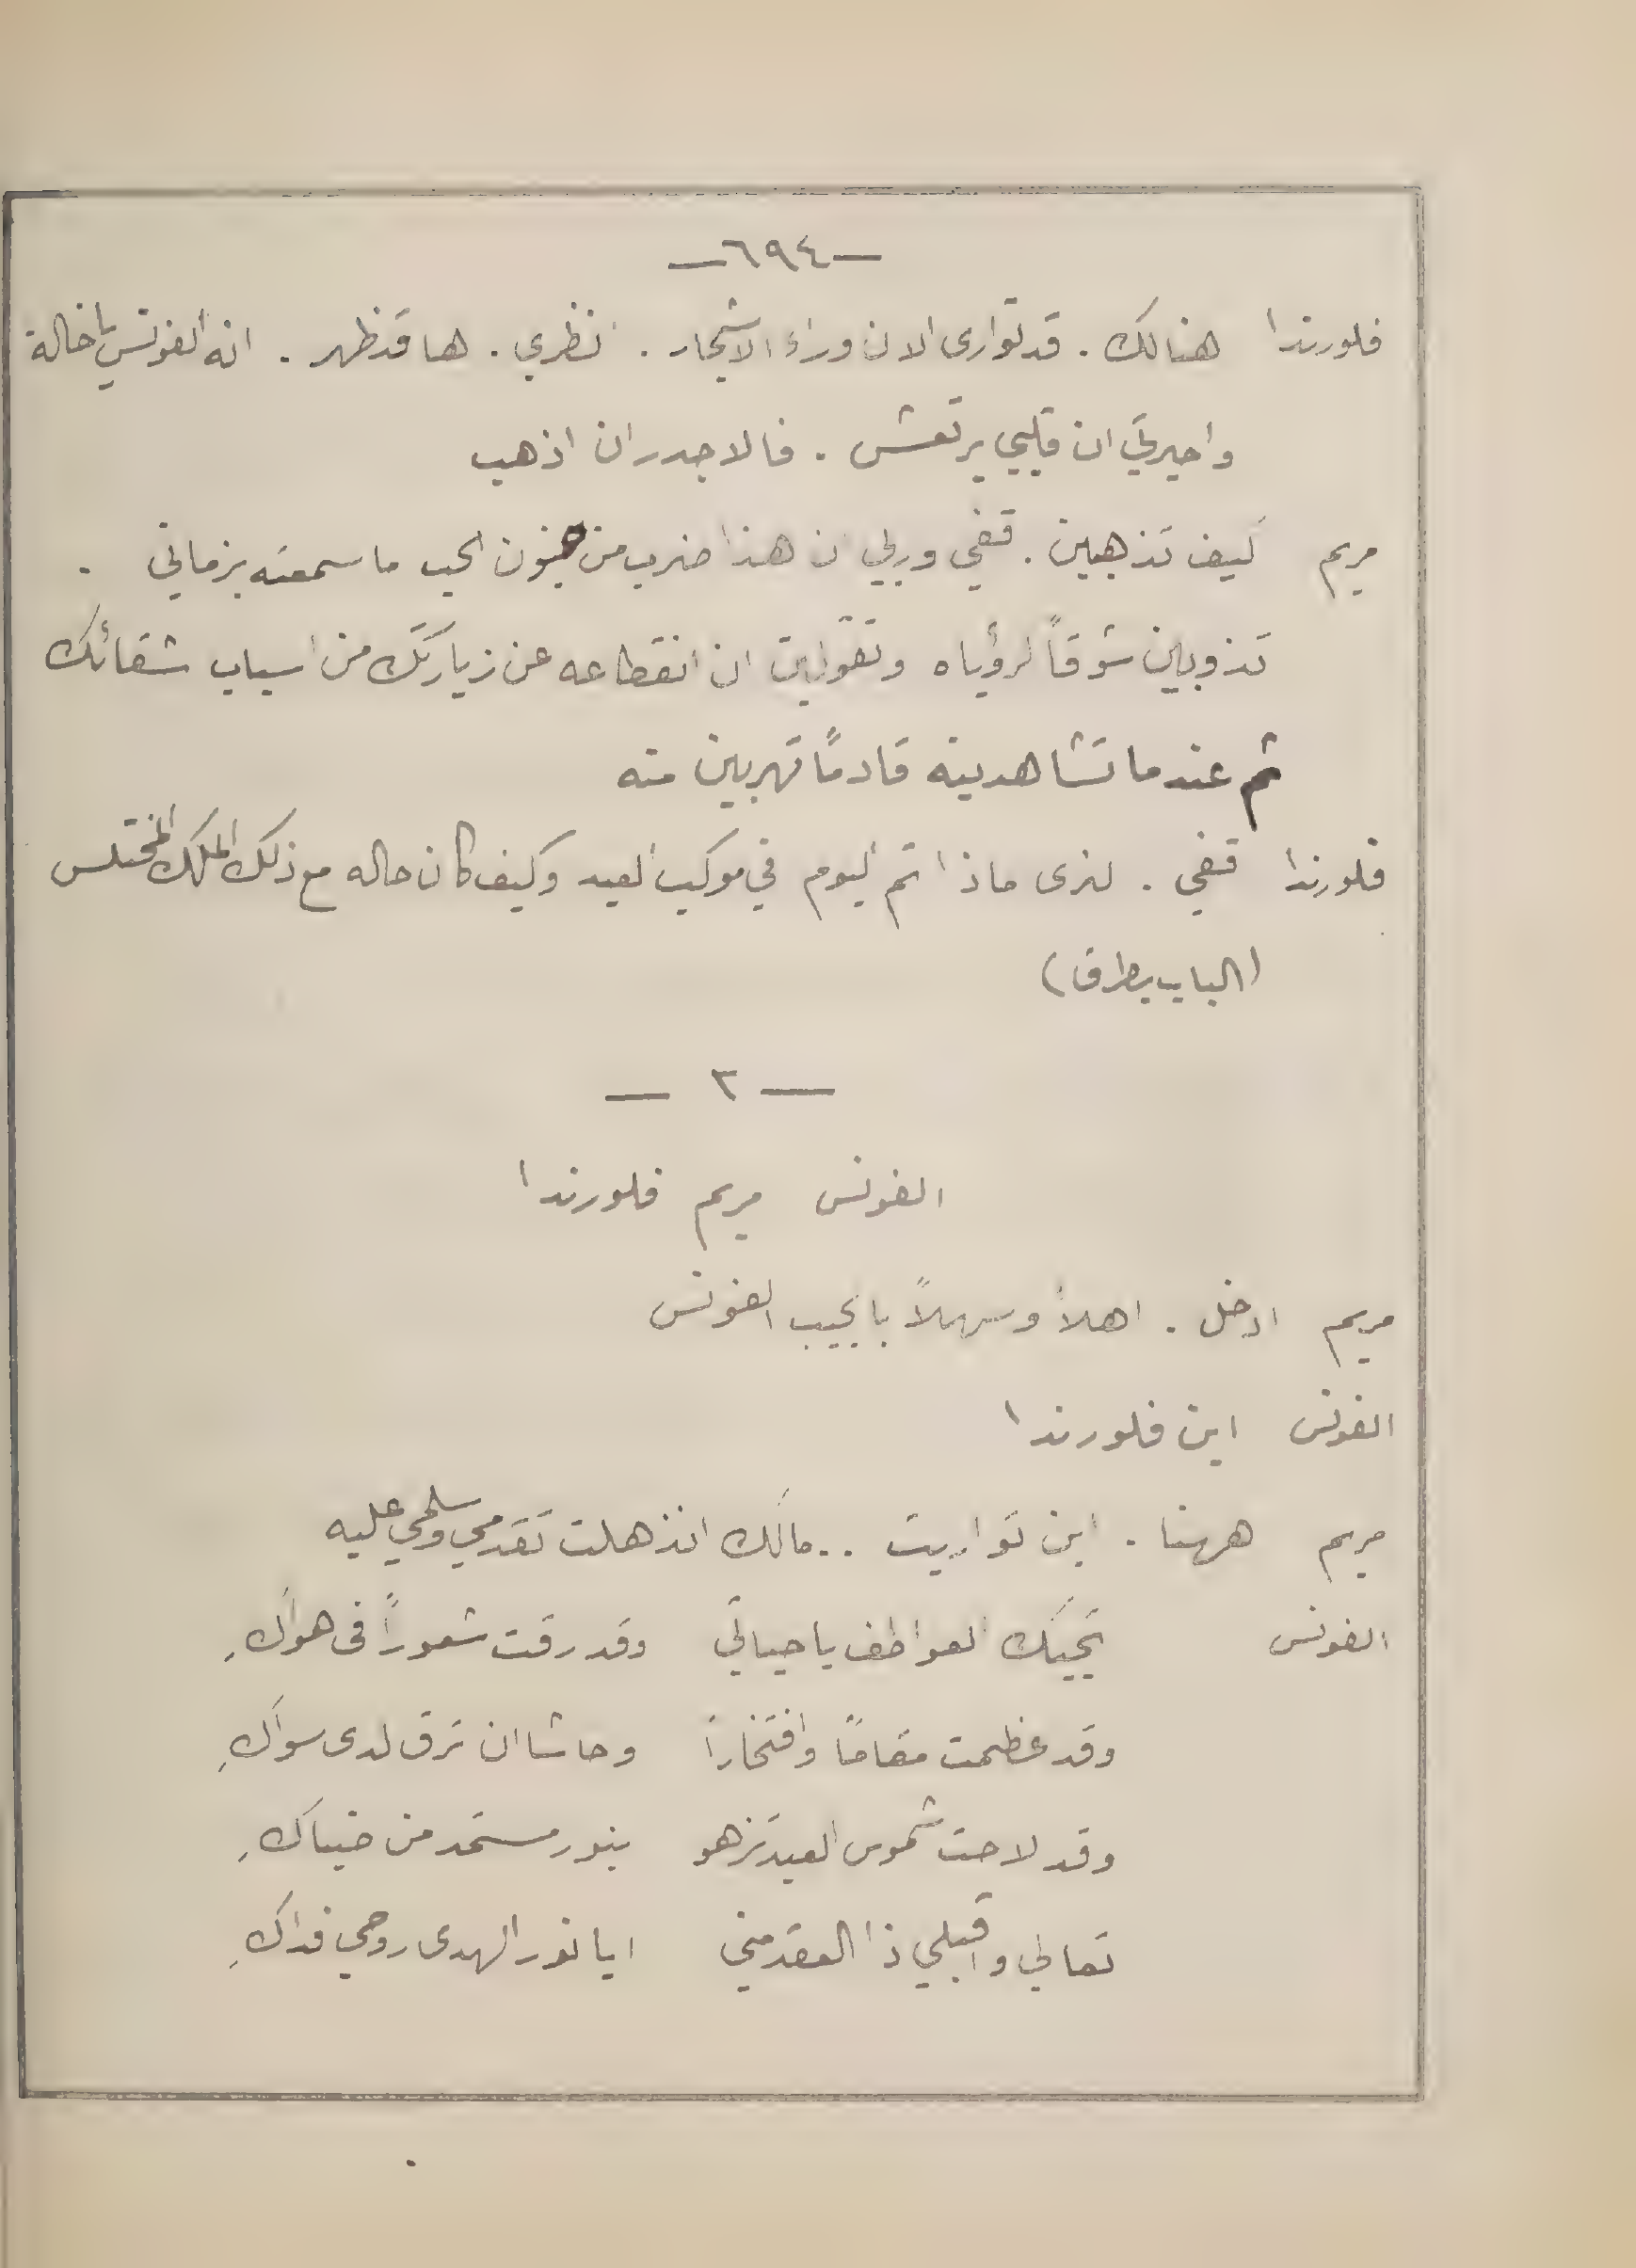 —٦٩٤—
فلورندا هنالك . قد توارى الان وراء الاشجار . انظري . ها قد ظهر . انه الفونس يا خالة
واحيرتي ان قلبي يرتعش . فالاجدر ان اذهب
مريم كيف تذهبين . قفي وربي ان هذا ضرب من جنون الحب ما سمعته بزماني .
تذوبين شوقاً لرؤياه وتقولين ان انقطاعه عن زيارتك من اسباب شقائك
ثم عندما تشاهدينه قادمًا تهربين منه
فلورندا قفي . لنرى ماذا تم اليوم في موكب العيد وكيف كان حاله مع ذلك الملك المختلس
(الباب يطرق)
— ٣ —
الفونس مريم فلورندا
مريم ادخل . اهلاً وسهلاً بالحبيب الفونس
الفونس اين فلورندا
مريم ههنا . اين تواريت .. مالك انذهلت تقدمي وسلمي عليه
الفونس تحييك العواطف يا حياتي وقد رقت شعوراً في هواكِ
وقد عظمت مقامًا وافتخارًا وحاشا ان ترق لدى سواكِ
وقد لاحت شموس العيد تزهو بنور مستمد من ضياكِ
تعالي واقبلي ذا العقد مني ايا نور الهدى روحي فداكِ